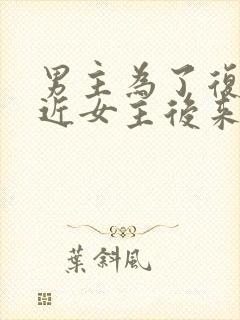 男主為了復
近女主後來
葉斜風